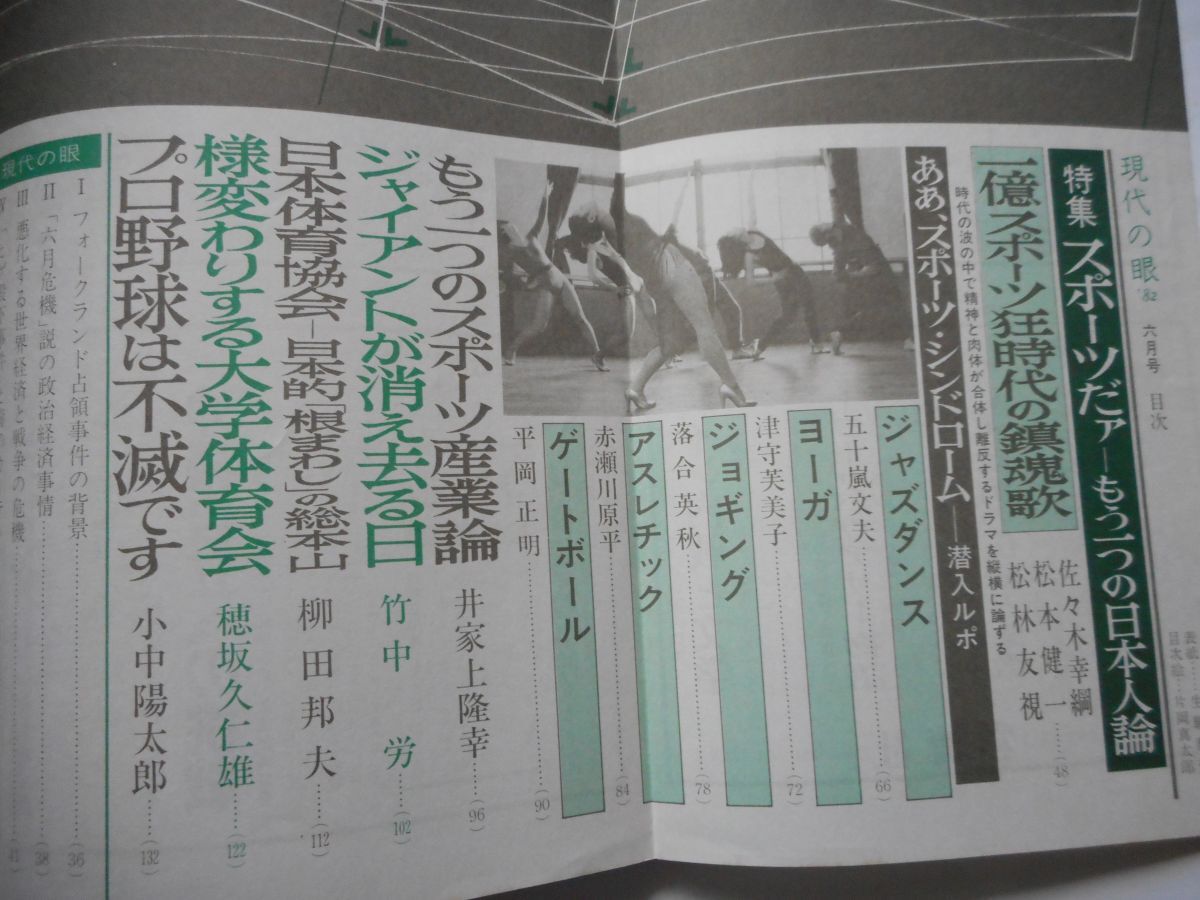 現代の眼 '82 六月号 目次
特集 スポーツだァーもう一つの日本人論
一億スポーツ狂時代の鎮魂歌
佐々木幸綱
松本健一……(48)
松林友視
時代の波の中で精神と肉体が合体し離反するドラマを縦横に論ずる
ああ、スポーツ・シンドローム――潜入ルポ
ジャズダンス
五十嵐文夫……(66)
ヨーガ
津守芙美子……(72)
ジョギング
落合英秋……(78)
アスレチック
赤瀬川原平……(84)
ゲートボール
平岡正明……(90)
もう一つのスポーツ産業論 井家上隆幸……(96)
ジャイアントが消え去る日 竹中 労……(102)
日本体育協会―日本的「根まわし」の総本山 柳田邦夫……(112)
様変わりする大学体育会 穂坂久仁雄……(122)
プロ野球は不滅です 小中陽太郎……(132)
現代の眼
Ⅰ フォークランド占領事件の背景……(36)
Ⅱ 「六月危機」説の政治経済事情……(38)
Ⅲ 悪化する世界経済と戦争の危機……41
目次絵・片岡真太郎